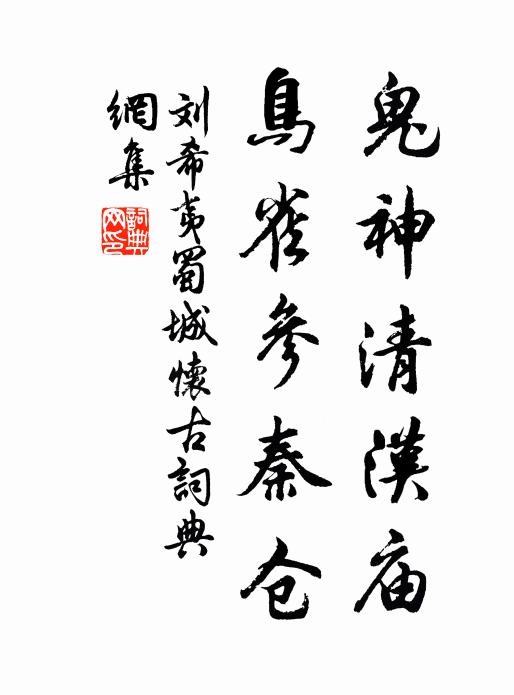 鬼神清漢庙
鳥雀參秦仓
刘希夷蜀城懷古詞典
網集
詞典網印